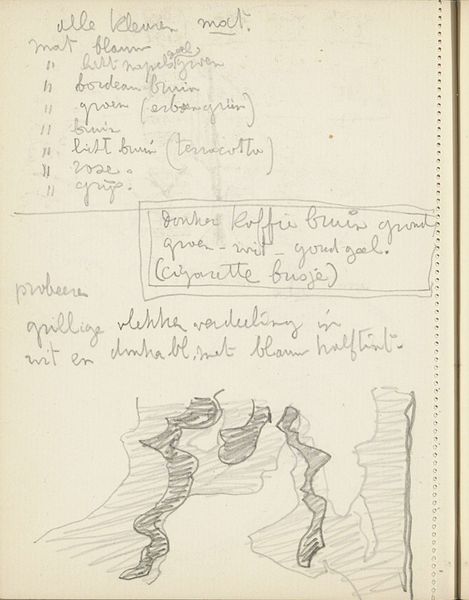 alle kleuren mat.
mat blauw
" licht napels geel groen
" bordeau bruin
" groen (erbsengrün)
" bruin
" licht bruin (terracotta)
" rose.
" grijs.
donker koffie bruin grond
groen - wit - goud geel.
(cigarette busje)
probeeren
grillige vlekken verdeeling in
wit en donker bl, met blauw halftint.